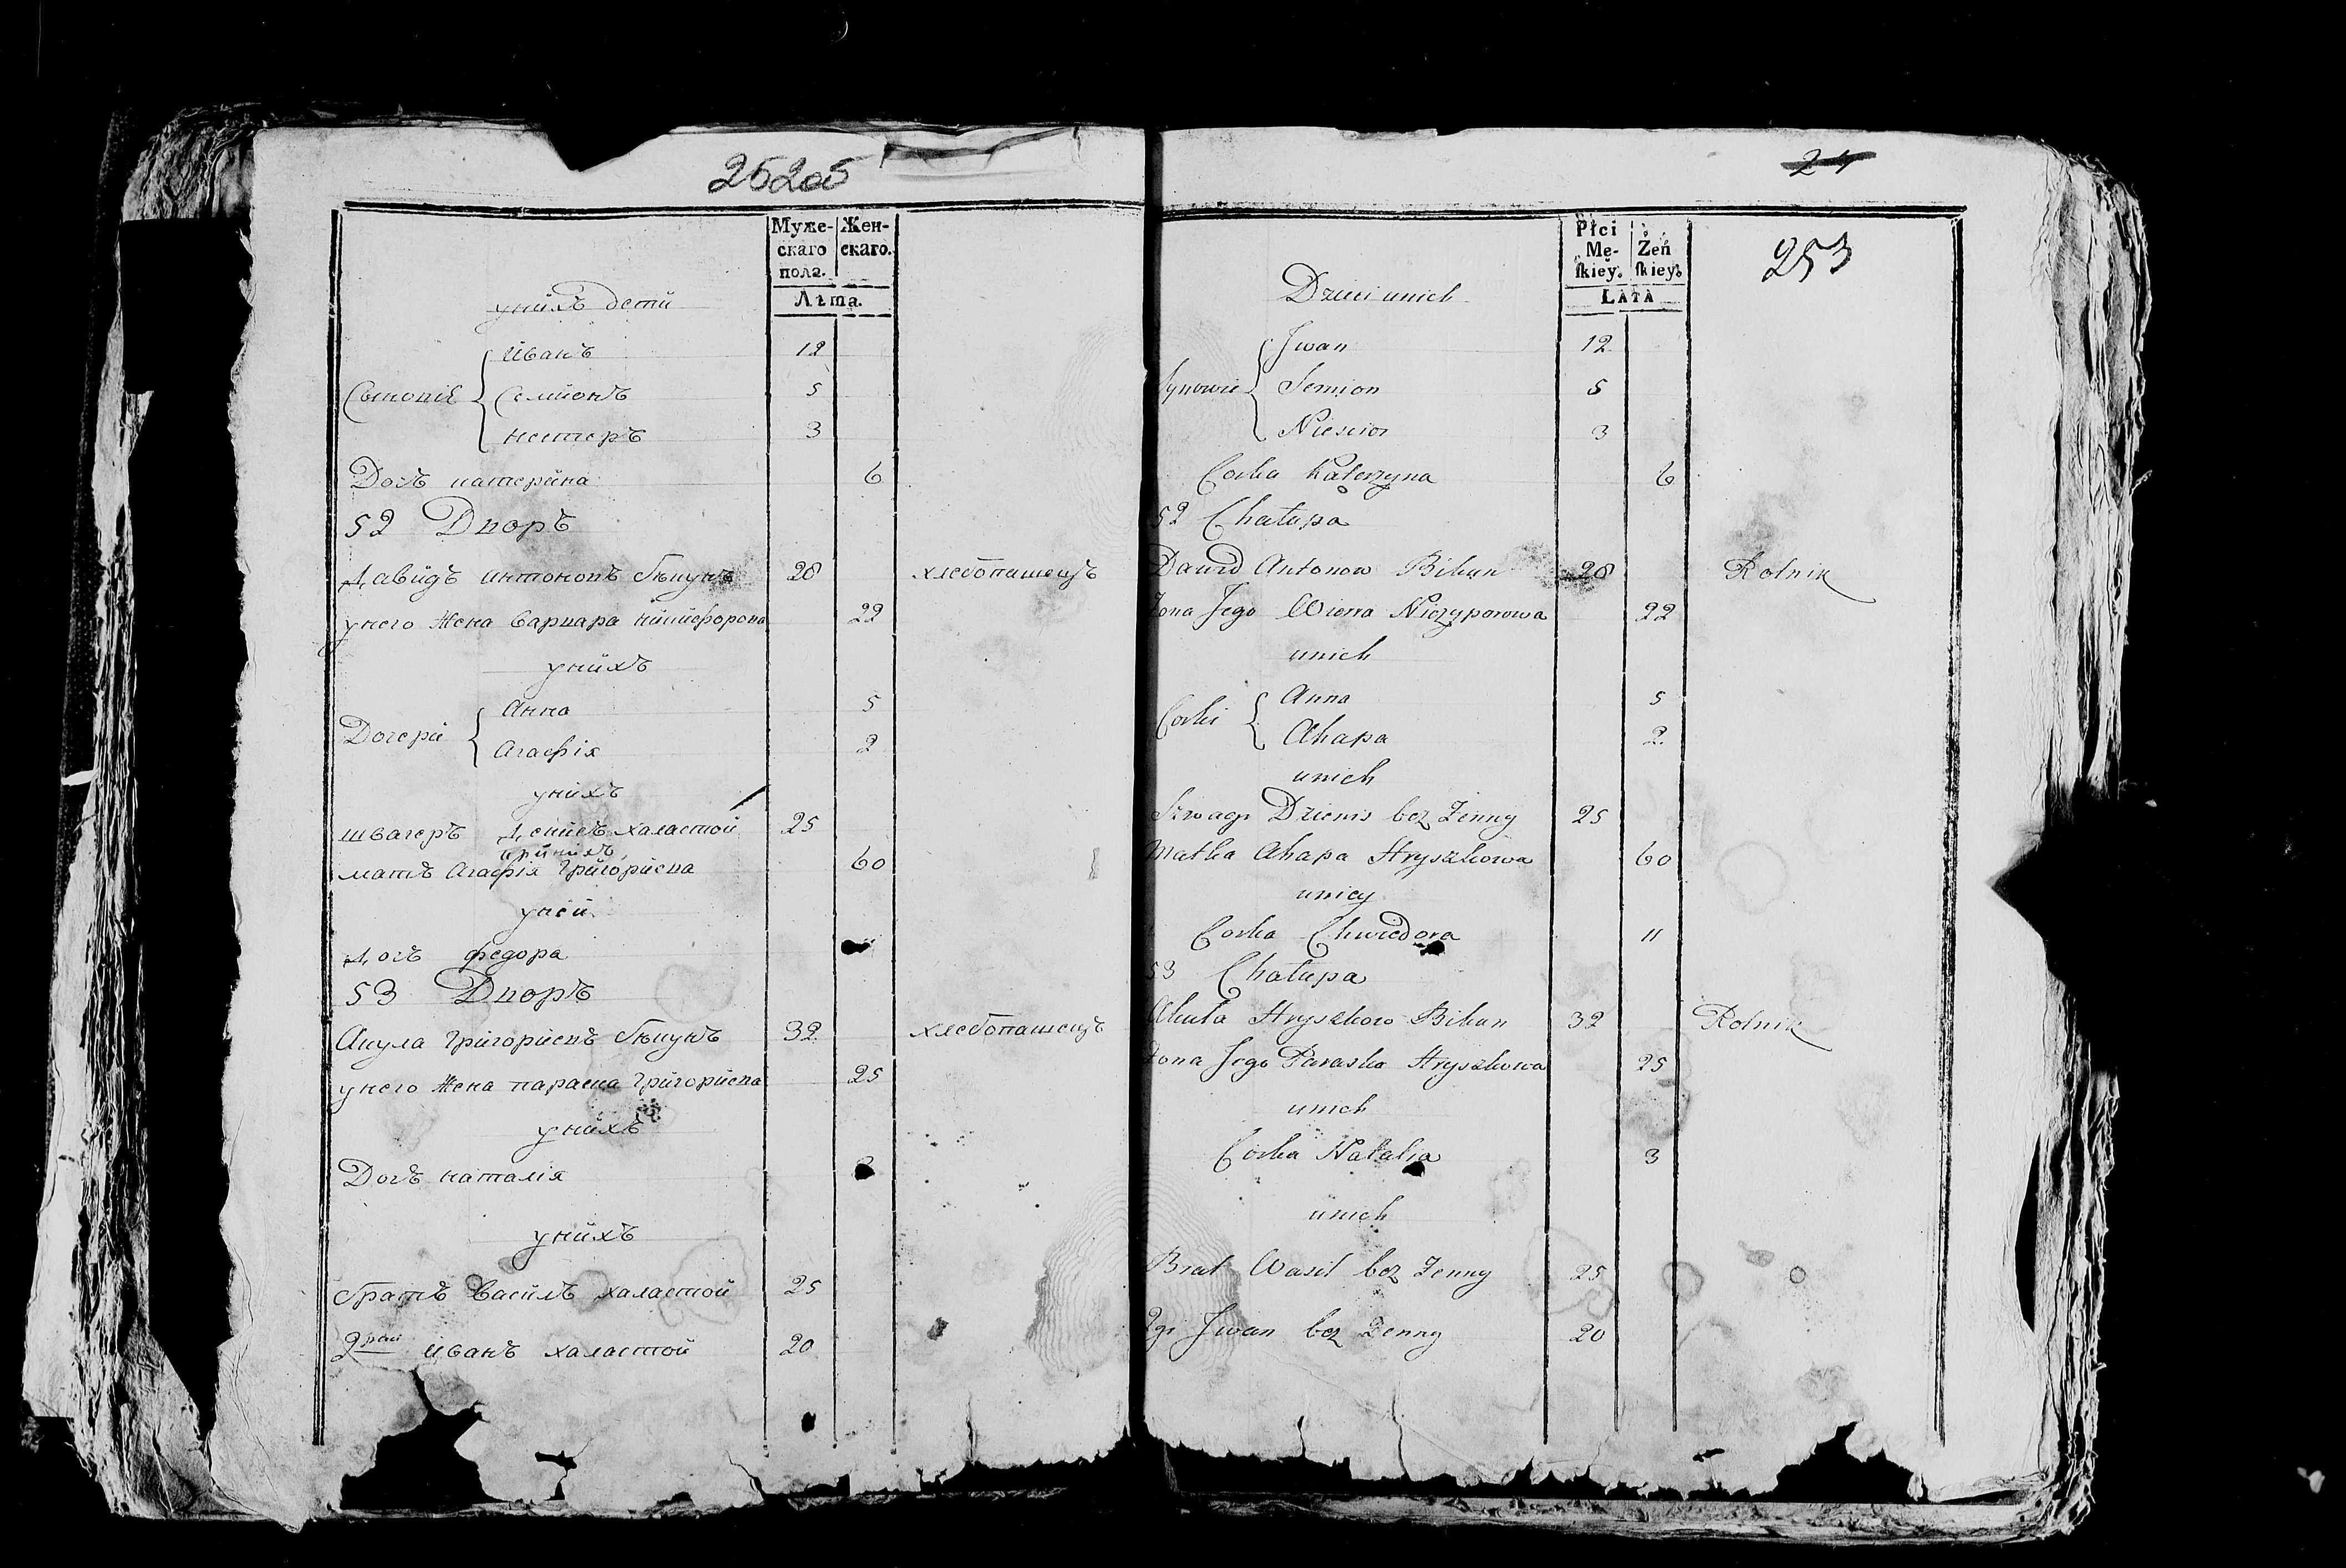 25205
Муже- Жен-
скаго скаго.
пола.
Лѣта.
унйхъ дети
Иванъ 12
Сынопiя Семионъ 5
нестеръ 3
Дочъ катерйна 6
52 Дворъ
Давйдъ антоновъ бѣкунъ 28 хлебопашецъ
унего Жена варвара нйчйпорова 22
унйхъ
Анна 5
Дочерй
Агафiя 2
унйхъ
швагеръ Денйсъ халастой 25
прйнихъ
матъ Агафiя Грйгорйева 60
уней
Дочъ федора
53 Дворъ
Акула Грйгорйевъ бѣкунъ 32 хлебопашецъ
унего Жена параска Грйгорйева 25
унйхъ
Дочъ наталiя 3
унйхъ
братъ василъ халастой 25
2рой иванъ халастой 20
24
253
Płci Żeń
Mę- skiey.
skiey.
LATA
Dzieci unich
Jwan 12
Synowie Semion 5
Niescior 3
Corka Katerzyna 6
52 Chałupa
Dawid Antonow Bikun 28 Rolnik
Zona Jego Wiera Niczyporowa 22
unich
Anna 5
Corki
Ahapa 2
unich
Szwagr Dzienis bez Zenny 25
Matka Ahapa Hryszkowa 60
unicy
Corka Chwiedora 11
53 Chałupa
Akuła Hryszkow Bikun 32 Rolnik
Zona Jego Paraska Hryszkowa 25
unich
Corka Natalia 3
unich
Brat Wasil bez Zenny 25
2gi Jwan bez Zenny 20